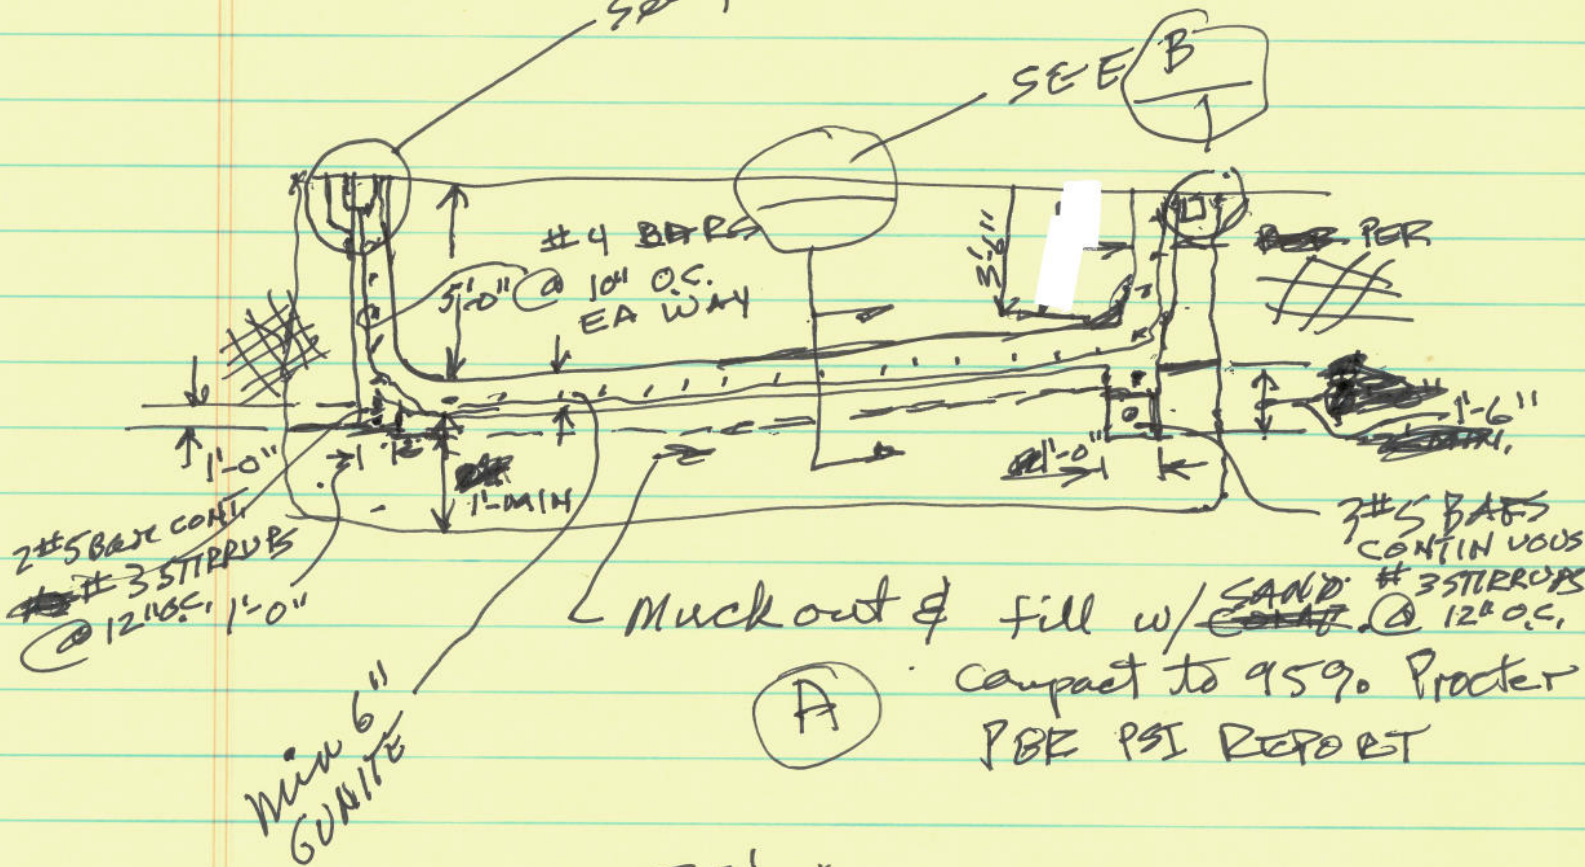 SEE B
1
#4 BARS
@ 10" O.C.
EA WAY
5'-0"
3'-6"
PER
1'-0"
12"
1'-MIN
1'-0"
1'-6"
2 #5 CONT.
#3 STIRRUPS
@ 12" O.C. 1'-0"
3 #5 BARS
CONTINUOUS
#3 STIRRUPS
@ 12" O.C.
Muck out & fill w/ SAND
compact to 95% Procter
PER PSI REPORT
A
min 6"
GUNITE